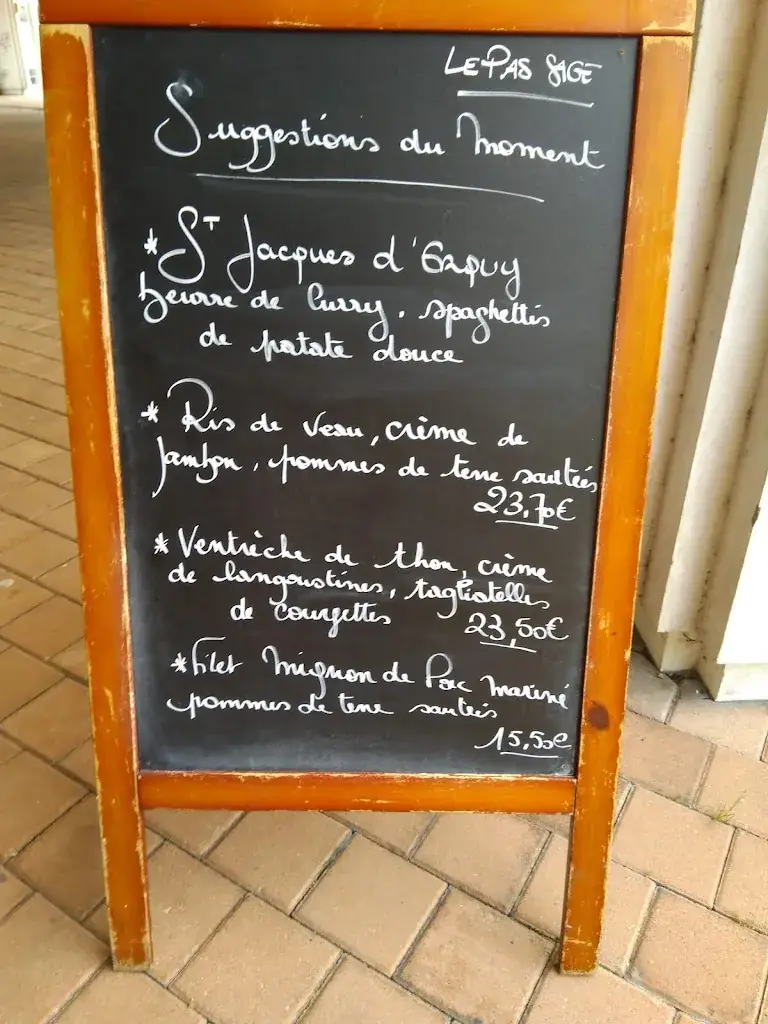 LE PAS SAGE
Suggestions du Moment
* ST Jacques d'Erquy
beurre de Curry, spaghettis
de patate douce
* Ris de Veau, crème de
Jambon, pommes de terre sautées
23,70€
* Ventrèche de thon, crème
de langoustines, tagliatelles
de courgettes 23,50€
* Filet Mignon de Porc Mariné
pommes de terre sautées
15,50€